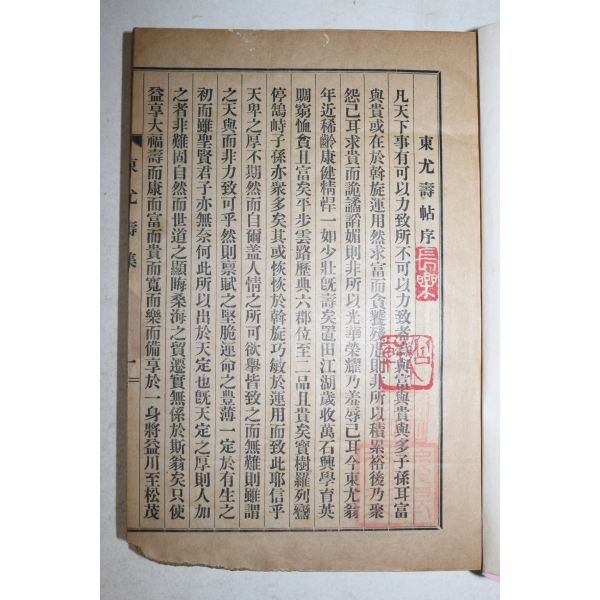 東尤壽帖序
凡天下事有可以力致所不可以力致者壽與富與貴與多子孫耳富
與貴或在於斡旋運用然求富而貪饕殘虐則非所以積累裕後乃聚
怨已耳求貴而詭譎謟媚則非所以光華榮耀乃羞辱已耳今東尤翁
年近稀齡康健精悍一如少壯旣壽矣置田江湖歲收萬石興學育英
賙窮恤貧且富矣平步雲路歷典六郡位至二品且貴矣寶樹羅列鸞
停鵠峙子孫亦衆多矣其或恢恢於斡旋巧敏於運用而致此耶信乎
天畀之厚不期然而自爾蓋人情之所可欲擧皆致之而無難則雖謂
之天與而非力致可乎然則禀賦之堅脆運命之豊薄一定於有生之
初而雖聖賢君子亦無奈何此所以出於天定也旣天定之厚則人加
之者非難固自然而世道之顯晦桑海之貿遷實無係於斯翁矣只使
益享大福壽而康而富而貴而寬而樂而備享於一身將益川至松茂
東尤壽集
一
長樂